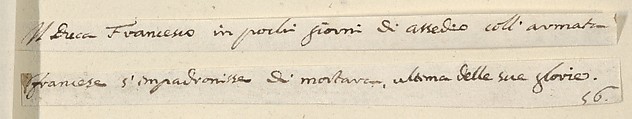 Il Duca Francesco in pochi giorni di assedio coll'armata
francese s'impadronisse di mortara, ultima delle sue glorie.
56.